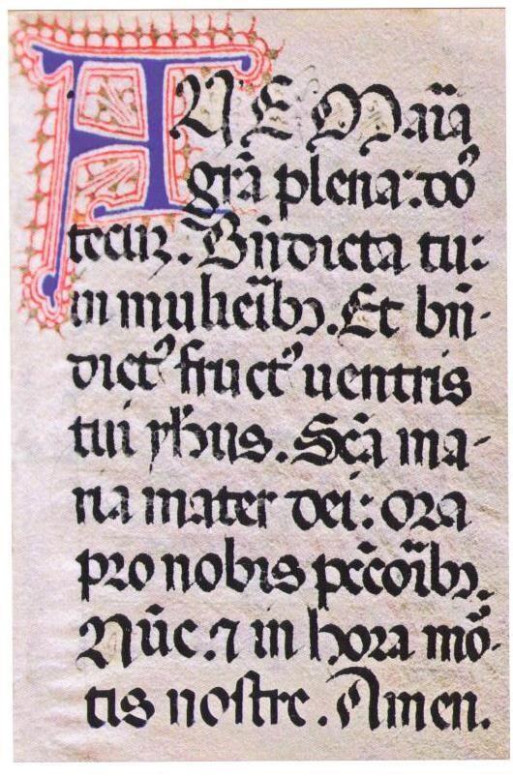 AVE Maria
gr̄a plena: dō
tecuȝ. Bn̄dicta tu:
in mulierībꝫ. Et bn̄-
dictꝰ fructꝰ uentris
tui yħus. Sc̄a ma-
ria mater dei: ora
pro nobis pc̄corībꝫ.
Nūc. ⁊ in hora mō-
tis nostre. Amen.